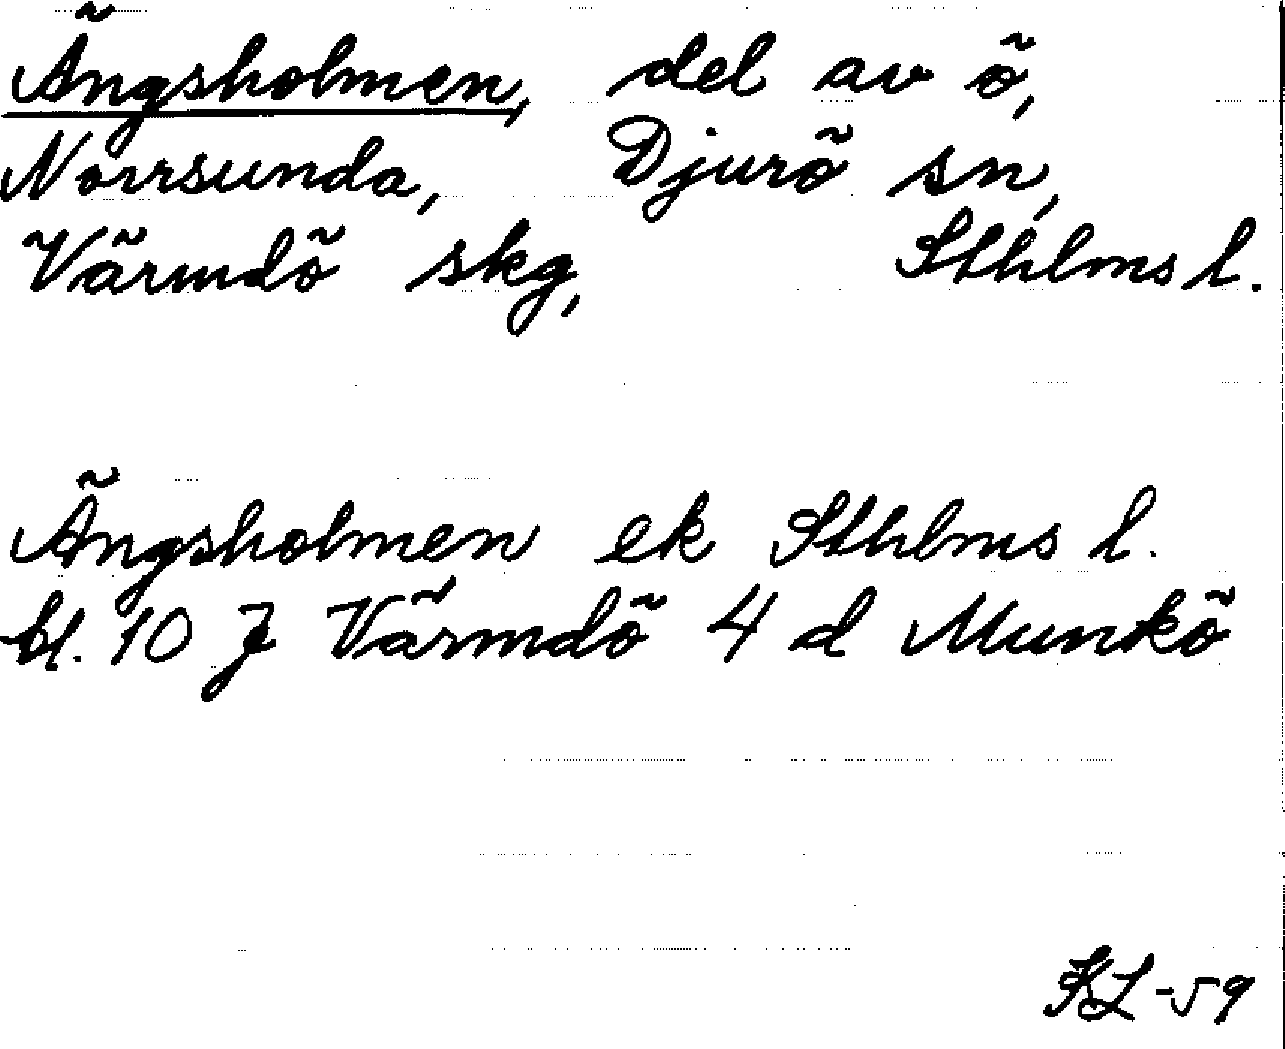 Ängsholmen, del av ö,
Norrsunda, Djurö sn,
Värmdö skg, Sthlms l.
Ängsholmen ek Sthlms l.
bl. 10 J Värmdö 4 d Munkö
SL-59